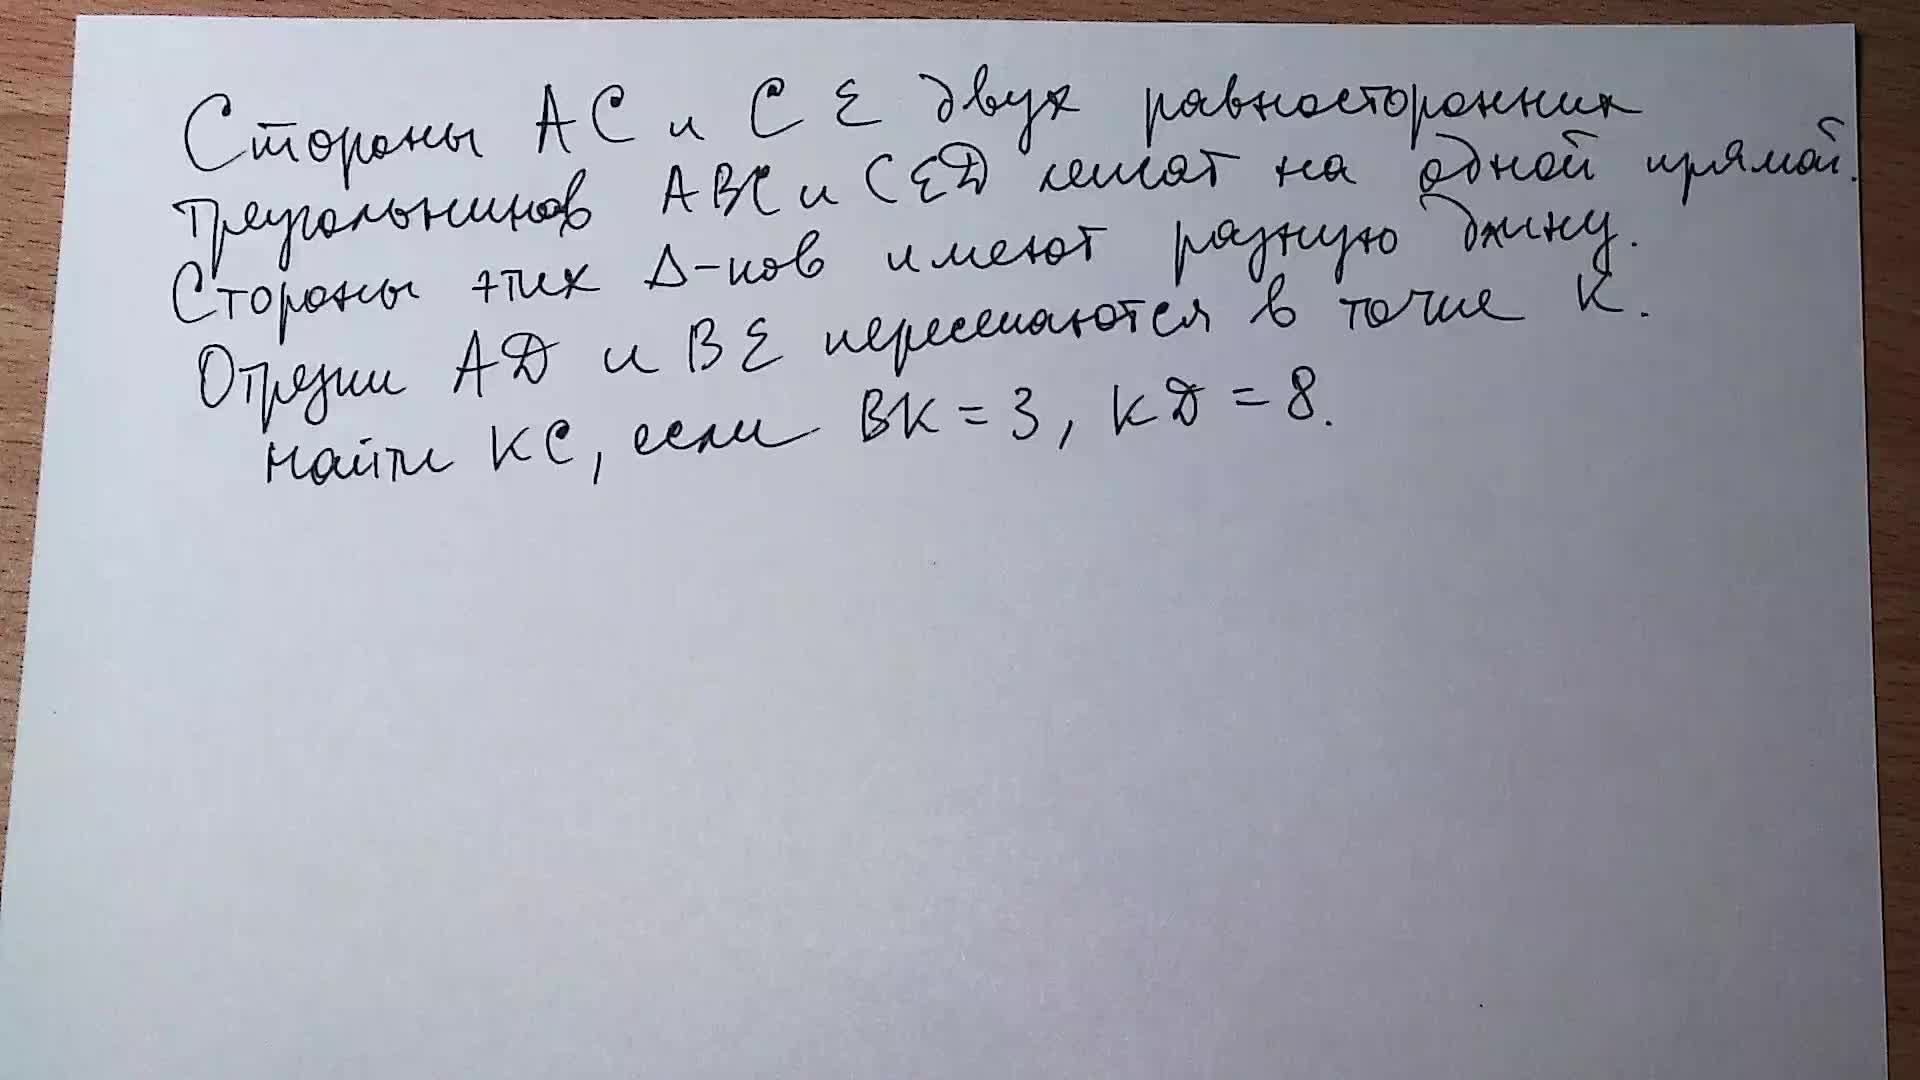 Стороны AC и CE двух равносторонних
треугольников ABC и CED лежат на одной прямой.
Стороны этих Δ-ков имеют разную длину.
Отрезки AD и BE пересекаются в точке K.
Найти KC, если BK = 3, KD = 8.